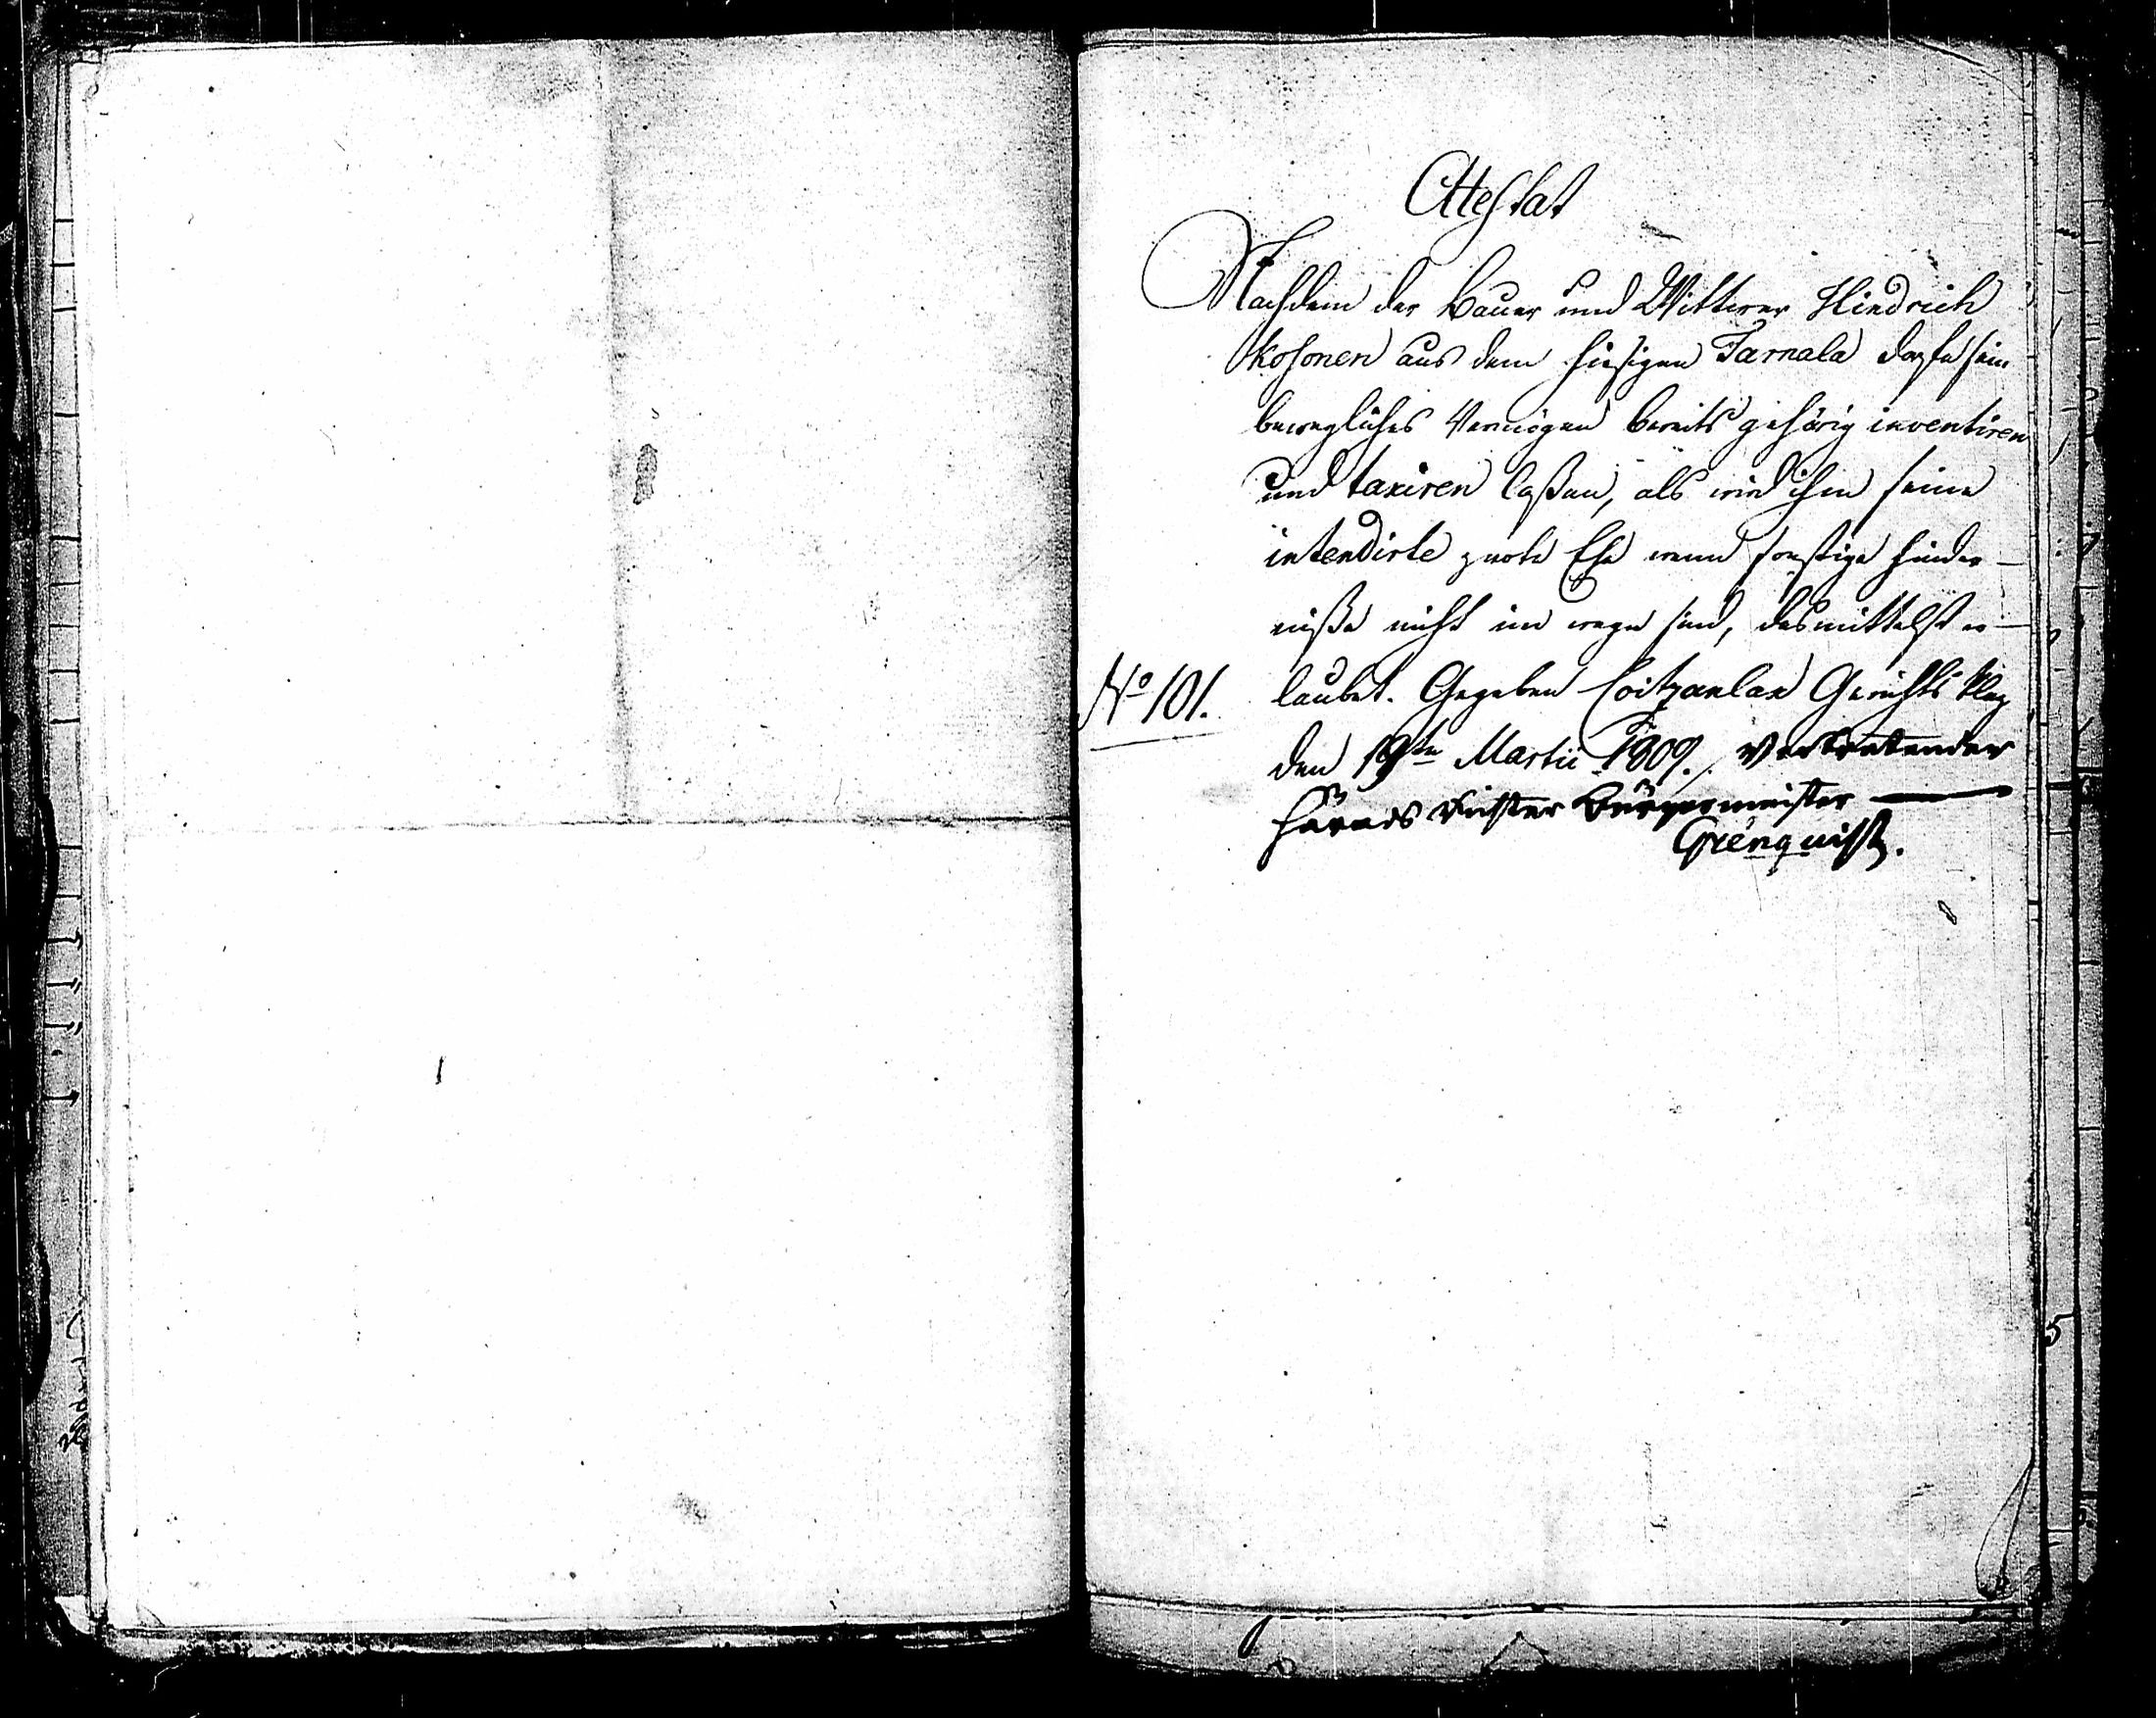 Attestat
Nachdem der Bauer und Wittwer Hindrich
Kosonen aus dem hiesigen Tarnala dorfe sein
bewegliches Vermögen bereits gehörig inventiren
und taxiren laßen, als wird ihm seine
intendirte zwote Ehe wenn sonstige hinder-
niße nicht im wege sind, desmittelst er-
laubet. Gegeben Gerichts Plaz
No 101.
den 19ten Martii 1809. Vertretender
Härads Richter Bürgermeister
Grénquist.